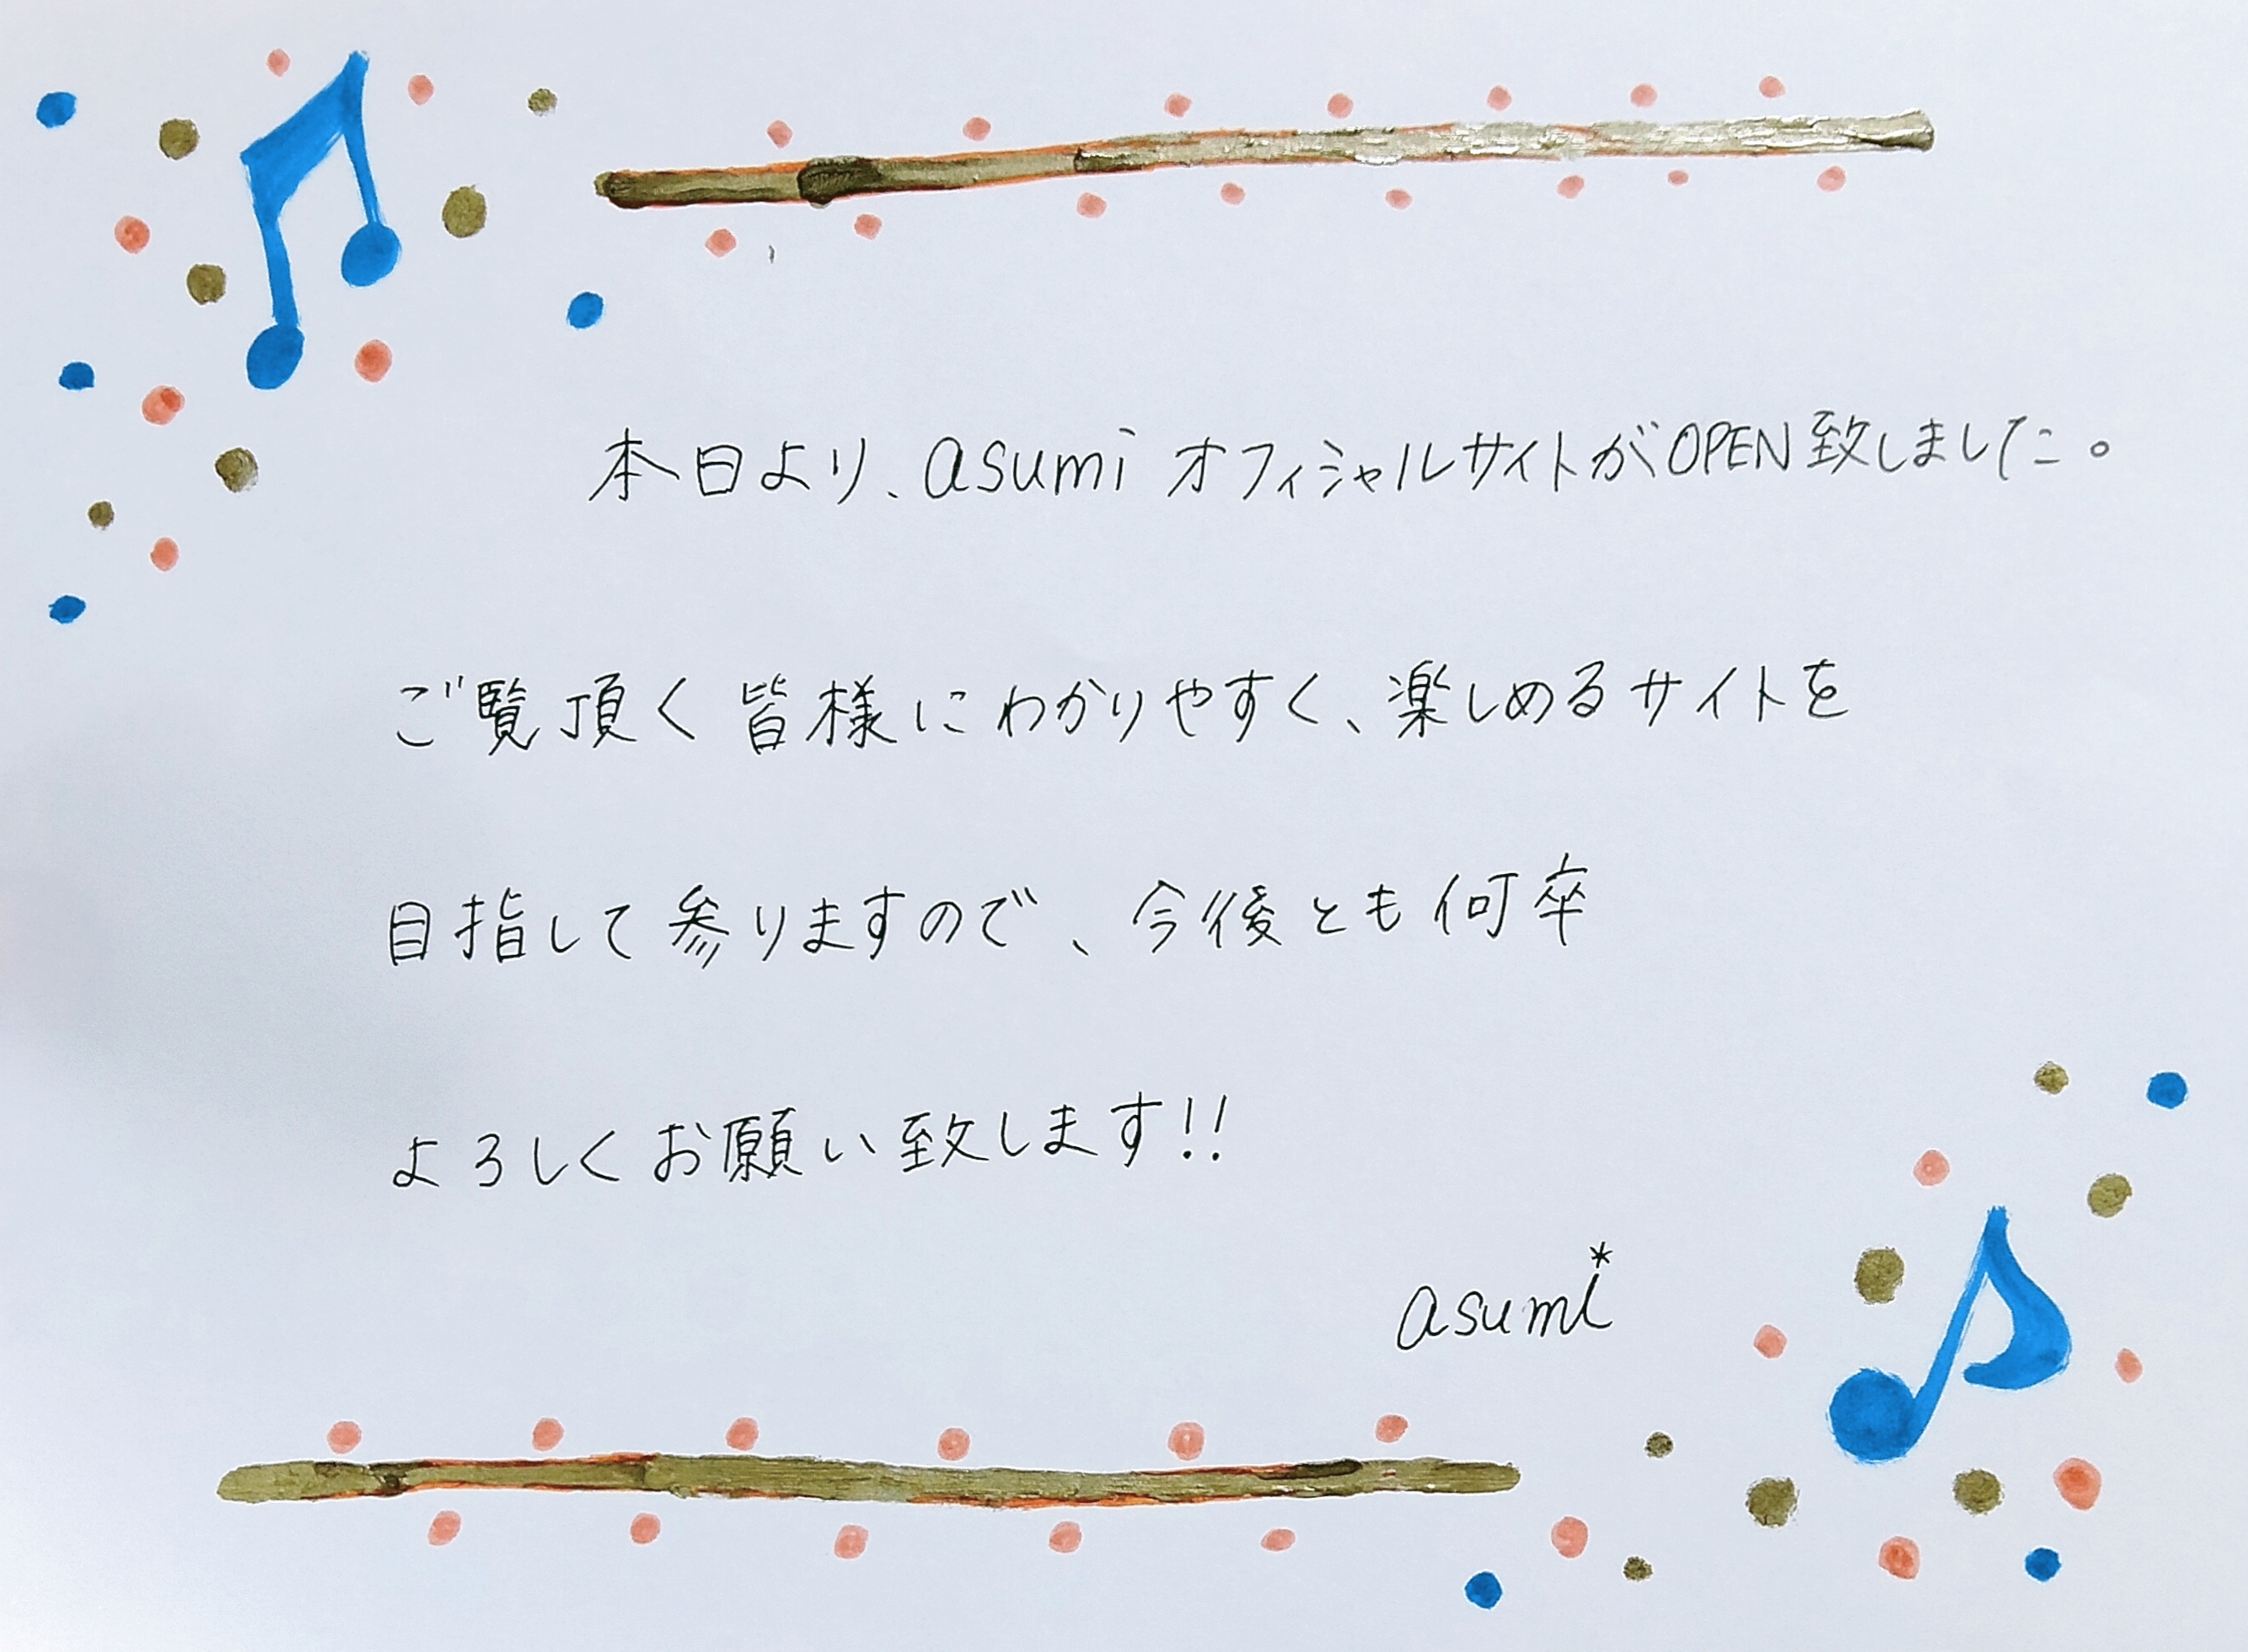 本日より、asumi オフィシャルサイトがOPEN致しました。
ご覧頂く皆様にわかりやすく、楽しめるサイトを
目指して参りますので、今後とも何卒
よろしくお願い致します!!
asumi